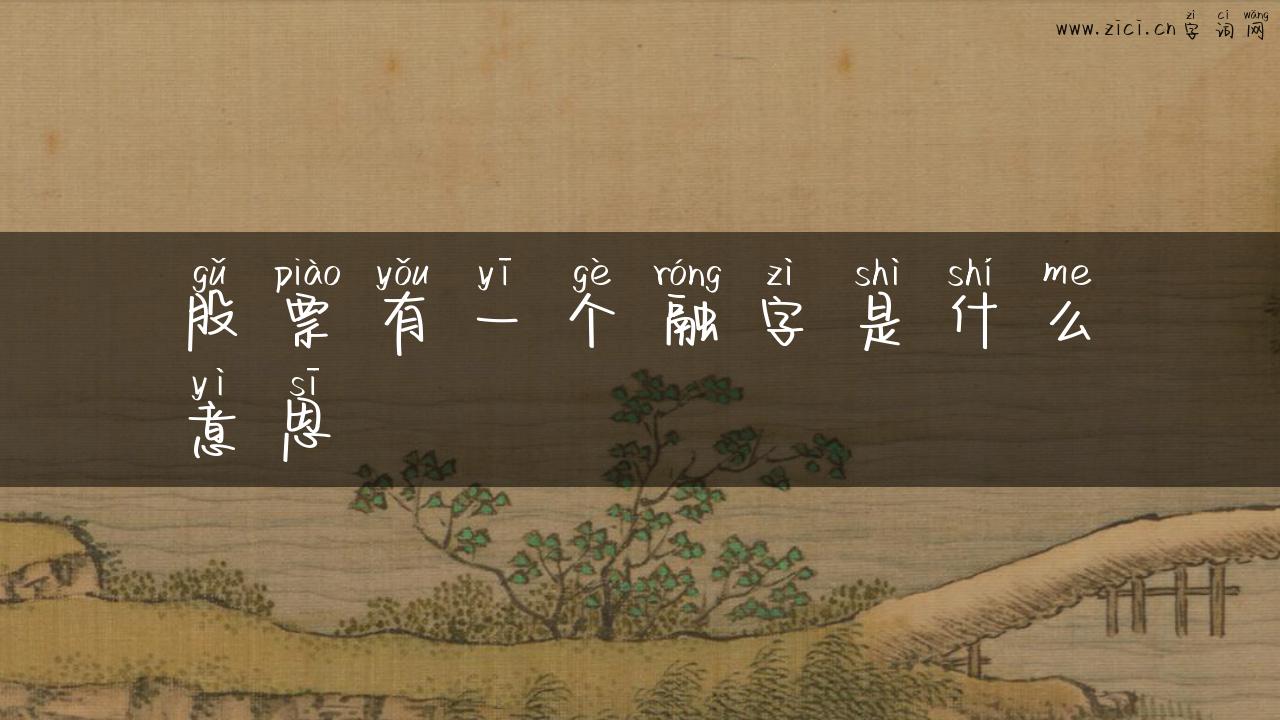 zì cí wǎng
www.zici.cn 字 词 网
gǔ piào yǒu yī gè róng zì shì shí me
股 票 有 一 个 融 字 是 什 么
yì sī
意 思